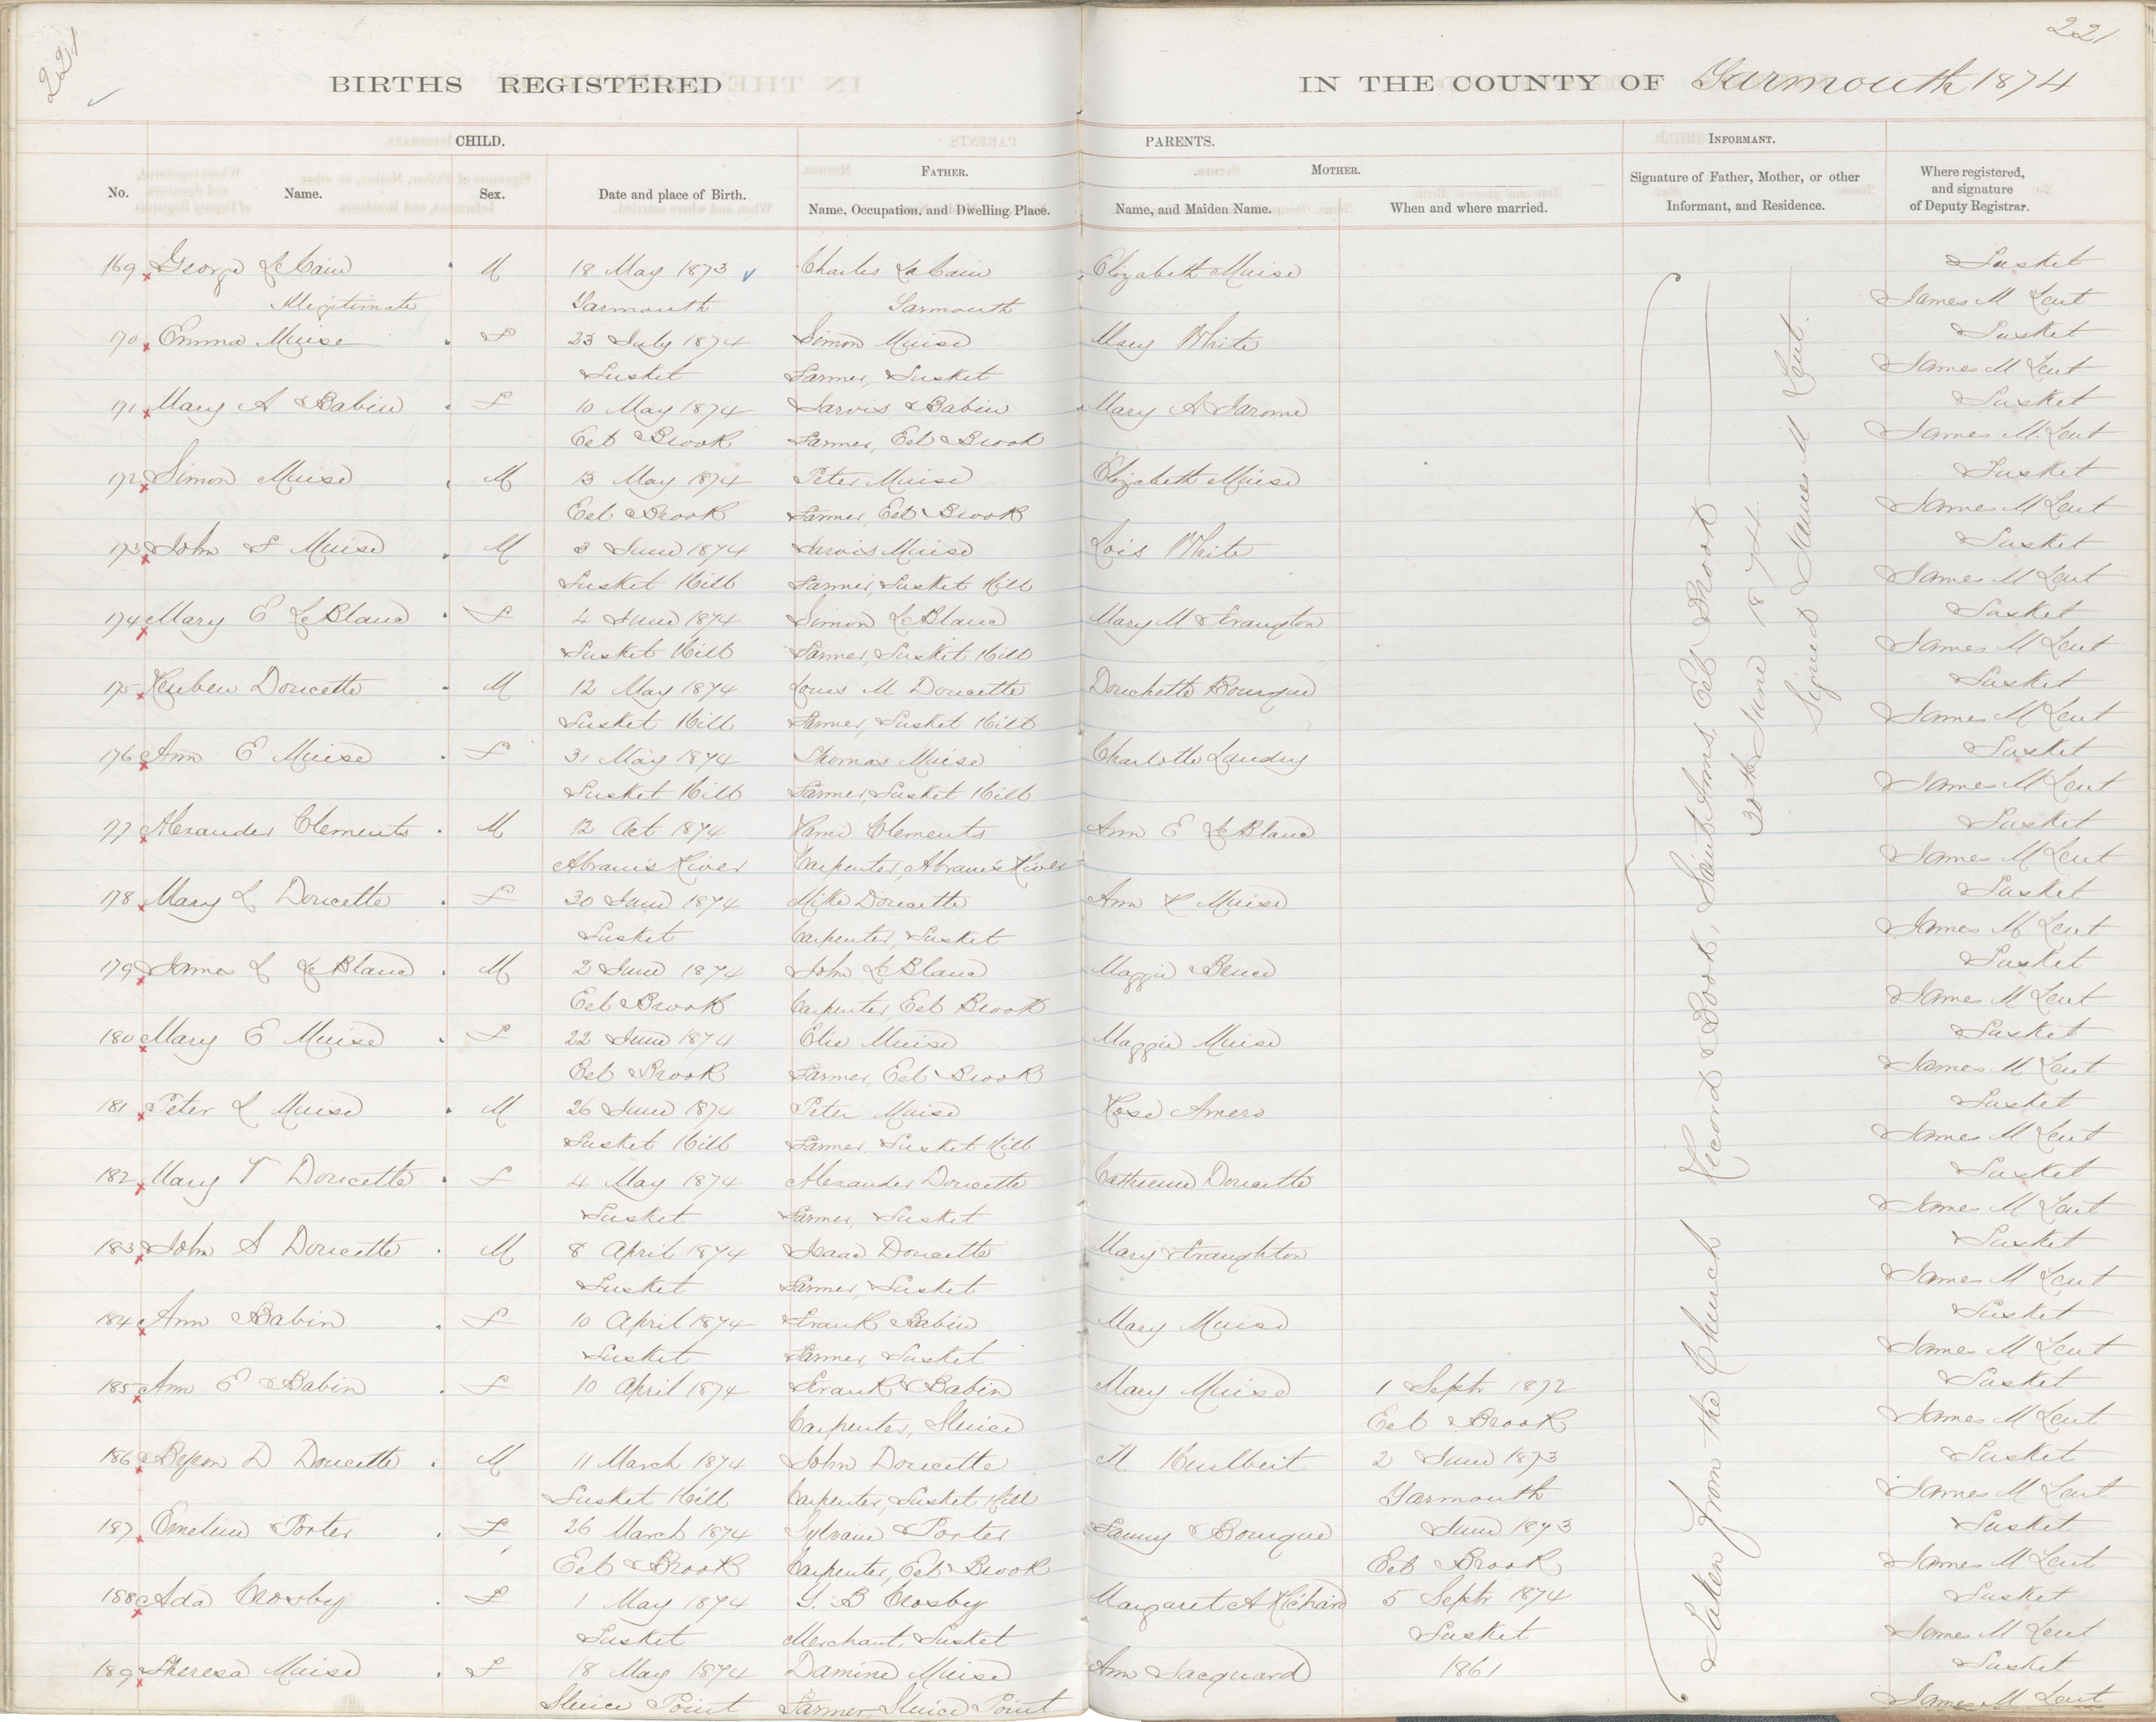 221
221
BIRTHS REGISTERED IN THE COUNTY OF Yarmouth 1874
CHILD. PARENTS. INFORMANT.
FATHER. MOTHER.
No. Name. Sex. Date and place of Birth. Name, Occupation, and Dwelling Place. Name, and Maiden Name. When and where married. Signature of Father, Mother, or other Informant, and Residence. Where registered, and signature of Deputy Registrar.
169 George LeCain M 18 May 1873 Charles LaCain Elizabeth Muise Tusket
Illegitimate Yarmouth Yarmouth James M Lent
170 Emma Muise F 23 July 1874 Simon Muise Mary White Tusket
Tusket Farmer, Tusket James M Lent
171 Mary A Babin F 10 May 1874 Jarvis Babin Mary A Jarome Tusket
Eel Brook Farmer, Eel Brook James M. Lent
172 Simon Muise M 13 May 1874 Peter Muise Elizabeth Muise Tusket
Eel Brook Farmer, Eel Brook James M Lent
173 John F Muise M 3 June 1874 Jarvis Muise Lois White Tusket
Tusket Hill Farmer, Tusket Hill James M Lent
174 Mary E LeBlanc F 4 June 1874 Simon LeBlanc Mary M Frangton Tusket
Tusket Hill Farmer, Tusket Hill James M Lent
175 Reuben Doucette M 12 May 1874 Louis M Doucette Douchette Bourque Tusket
Tusket Hill Farmer, Tusket Hill James M Lent
176 Ann E Muise F 31 May 1874 Thomas Muise Charlotte Landry Tusket
Tusket Hill Farmer, Tusket Hill James M Lent
77 Alexander Clements M 12 Oct 1874 Remi Clements Ann E LeBlanc Tusket
Abram's River Carpenter, Abram's River James M Lent
178 Mary L Doucette F 30 June 1874 Mike Doucette Ann Muise Tusket
Tusket Carpenter, Tusket James M Lent
179 James L LeBlanc M 2 June 1874 John LeBlanc Maggie Tusket
Eel Brook Carpenter, Eel Brook James M Lent
180 Mary E Muise F 22 June 1874 Elie Muise Maggie Muise Tusket
Eel Brook Farmer, Eel Brook James M Lent
181 Peter L Muise M 26 June 1874 Peter Muise Rose Amero Tusket
Tusket Hill Farmer Tusket Hill James M Lent
182 Mary T Doucette F 4 May 1874 Alexander Doucette Catherine Doucette Tusket
Tusket Farmer, Tusket James M Lent
183 John S Doucette M 8 April 1874 Isaac Doucette Mary Franghton Tusket
Tusket Farmer, Tusket James M Lent
184 Ann Babin F 10 April 1874 Frank Babin Mary Muise Tusket
Tusket Farmer, Tusket James M Lent
185 Ann E Babin F 10 April 1874 Frank Babin Mary Muise 1 Septr 1872 Tusket
Carpenter, Sluice Eel Brook James M Lent
186 D Doucette M 11 March 1874 John Doucette M Hurlbert 2 June 1873 Tusket
Tusket Hill Carpenter, Tusket Hill Yarmouth James M Lent
187 Emeline Porter F 26 March 1874 Sylvain Porter Fanny Bourque June 1873 Tusket
Eel Brook Carpenter, Eel Brook Eel Brook James M Lent
188 Ada Crosby F 1 May 1874 B Crosby Margaret A Richard 5 Septr 1874 Tusket
Tusket Merchant, Tusket Tusket James M Lent
189 Theresa Muise F 18 May 1874 Damine Muise Ann Jacquard 1861 Tusket
Sluice Point Farmer, Sluice Point James M Lent
Taken from the Church Record Book, Saint Anns, Eel Brook
30th June 1874.
Signed James M Lent.